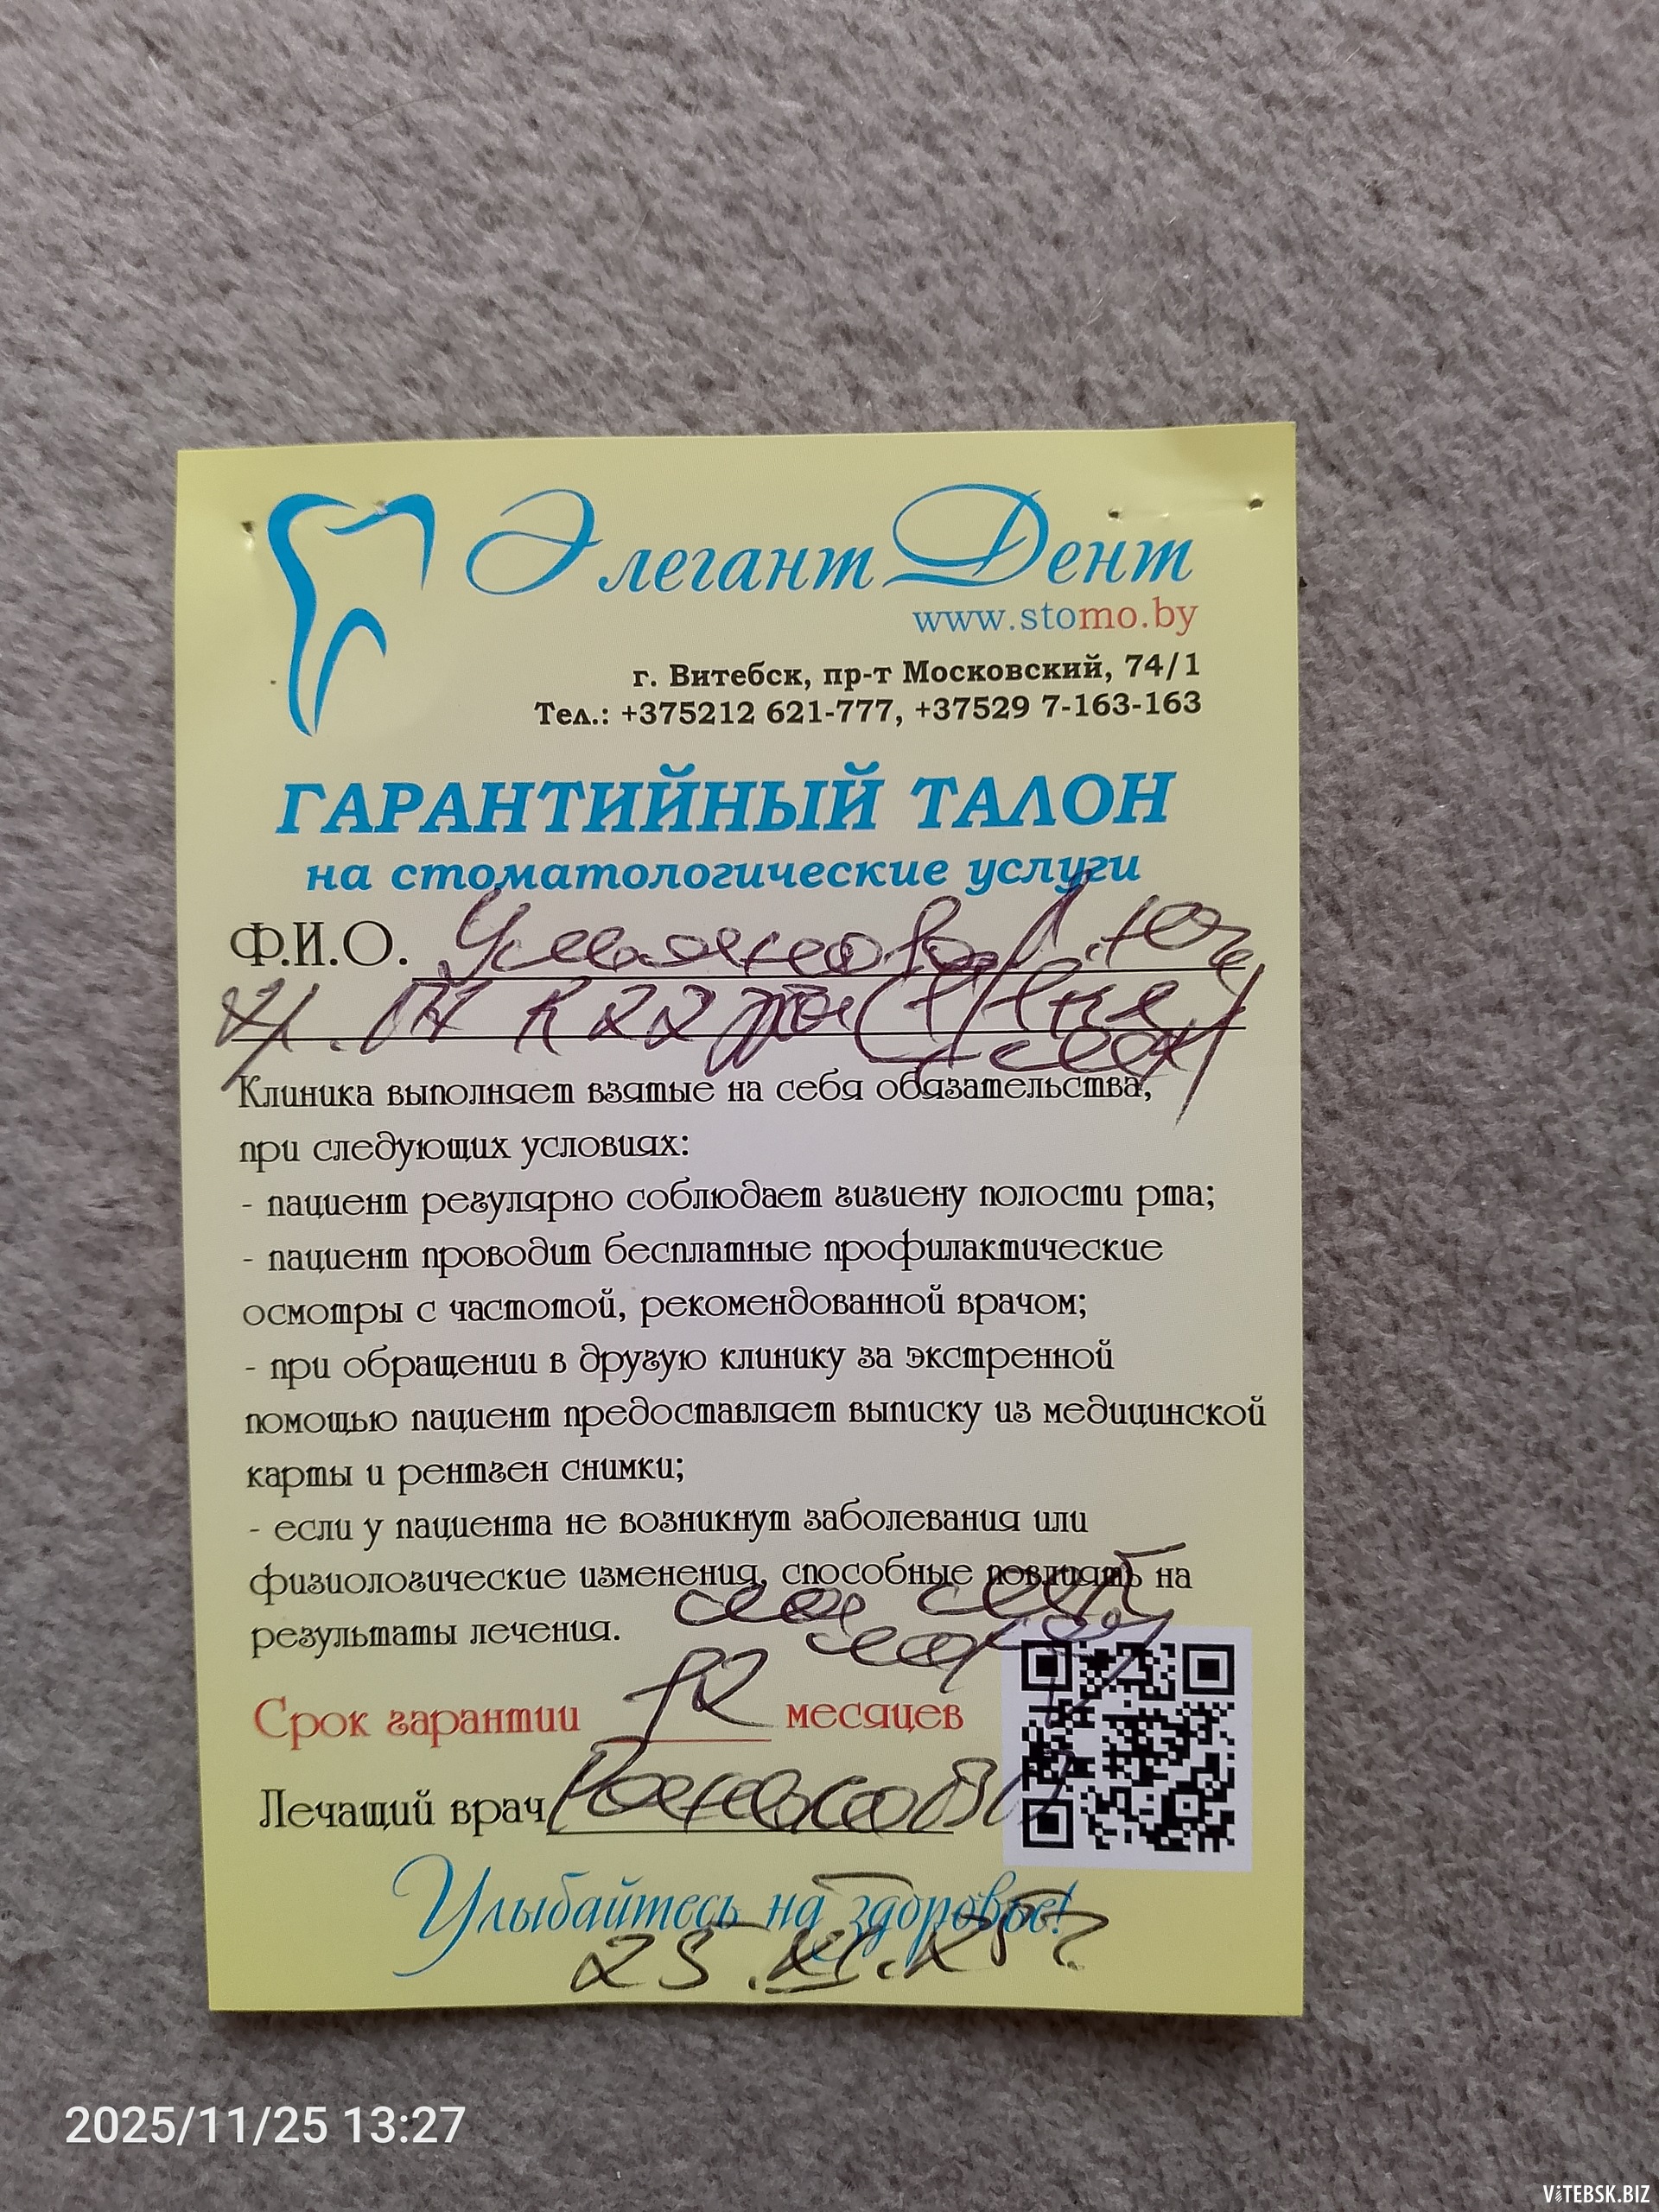 Элегант Дент
www.stomo.by
г. Витебск, пр-т Московский, 74/1
Тел.: +375212 621-777, +37529 7-163-163
ГАРАНТИЙНЫЙ ТАЛОН
на стоматологические услуги
Ф.И.О.
Клиника выполняет взятые на себя обязательства,
при следующих условиях:
- пациент регулярно соблюдает гигиену полости рта;
- пациент проводит бесплатные профилактические
осмотры с частотой, рекомендованной врачом;
- при обращении в другую клинику за экстренной
помощью пациент предоставляет выписку из медицинской
карты и рентген снимки;
- если у пациента не возникнут заболевания или
физиологические изменения, способные повлиять на
результаты лечения.
Срок гарантии 12 месяцев
Лечащий врач
Улыбайтесь на здоровье!
25.XI.25г.
2025/11/25 13:27
ViTEBSK.BIZ